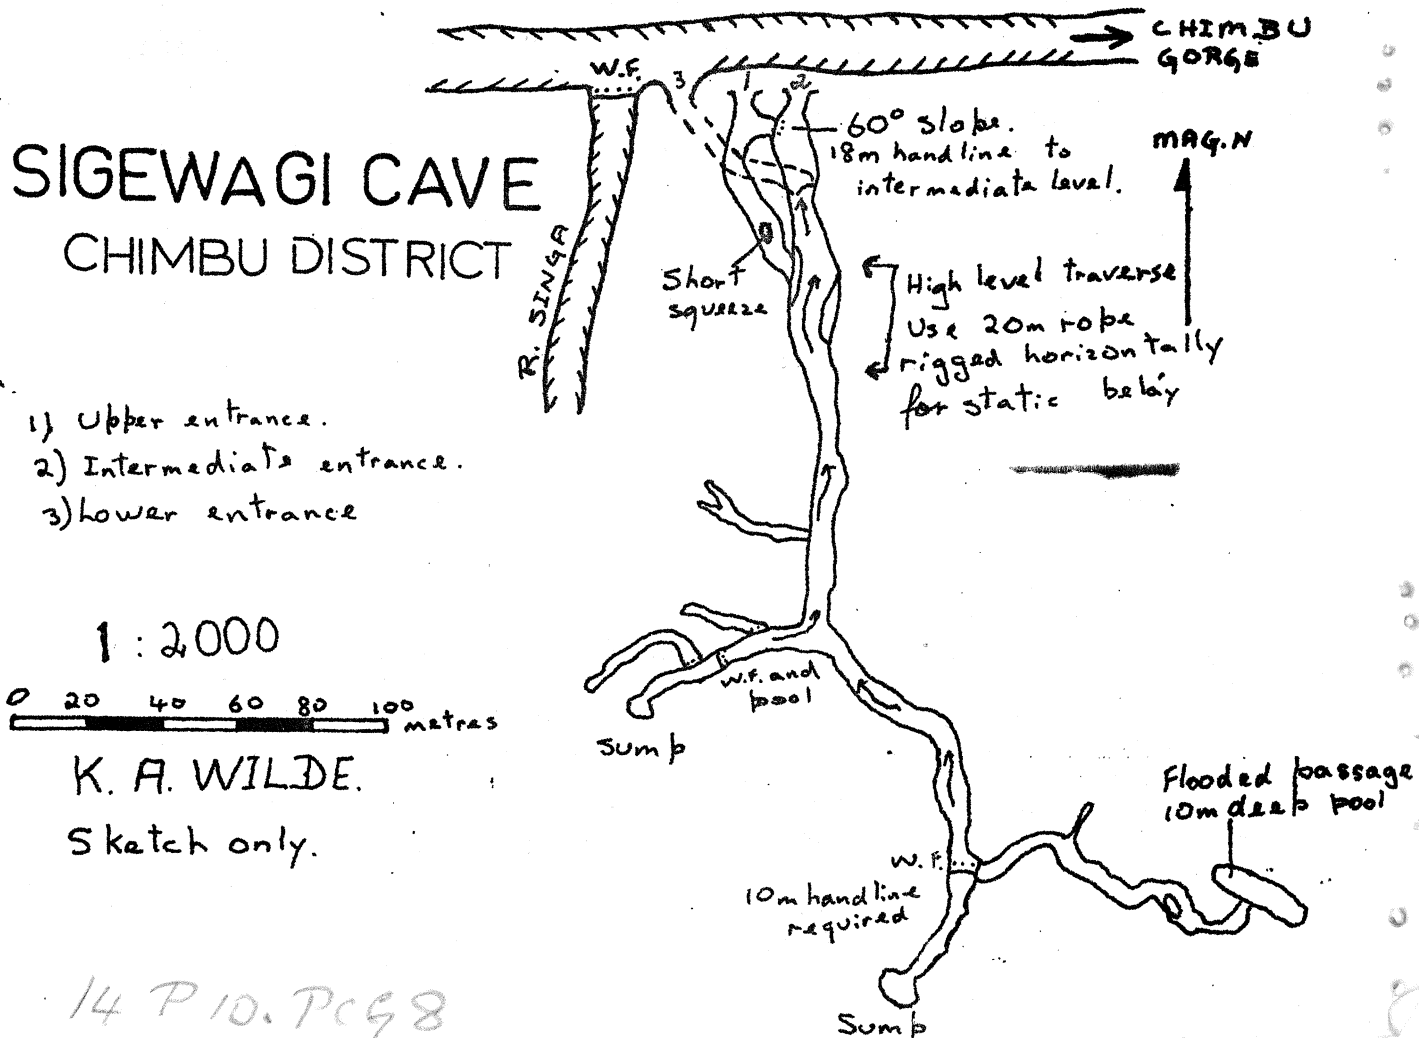 CHIMBU
GORGE
W.F.
3
1
2
60° slope.
18m handline to
intermediate level.
MAG.N
SIGEWAGI CAVE
CHIMBU DISTRICT
R. SINGA
Short
squeeze
High level traverse
Use 20m rope
rigged horizontally
for static belay
1) Upper entrance.
2) Intermediate entrance.
3) Lower entrance
1 : 2000
0 20 40 60 80 100 metres
K. A. WILDE.
Sketch only.
W.F. and
pool
Sump
Flooded passage
10m deep pool
W.F.
10m handline
required
Sump
14 P 10. PCG 8